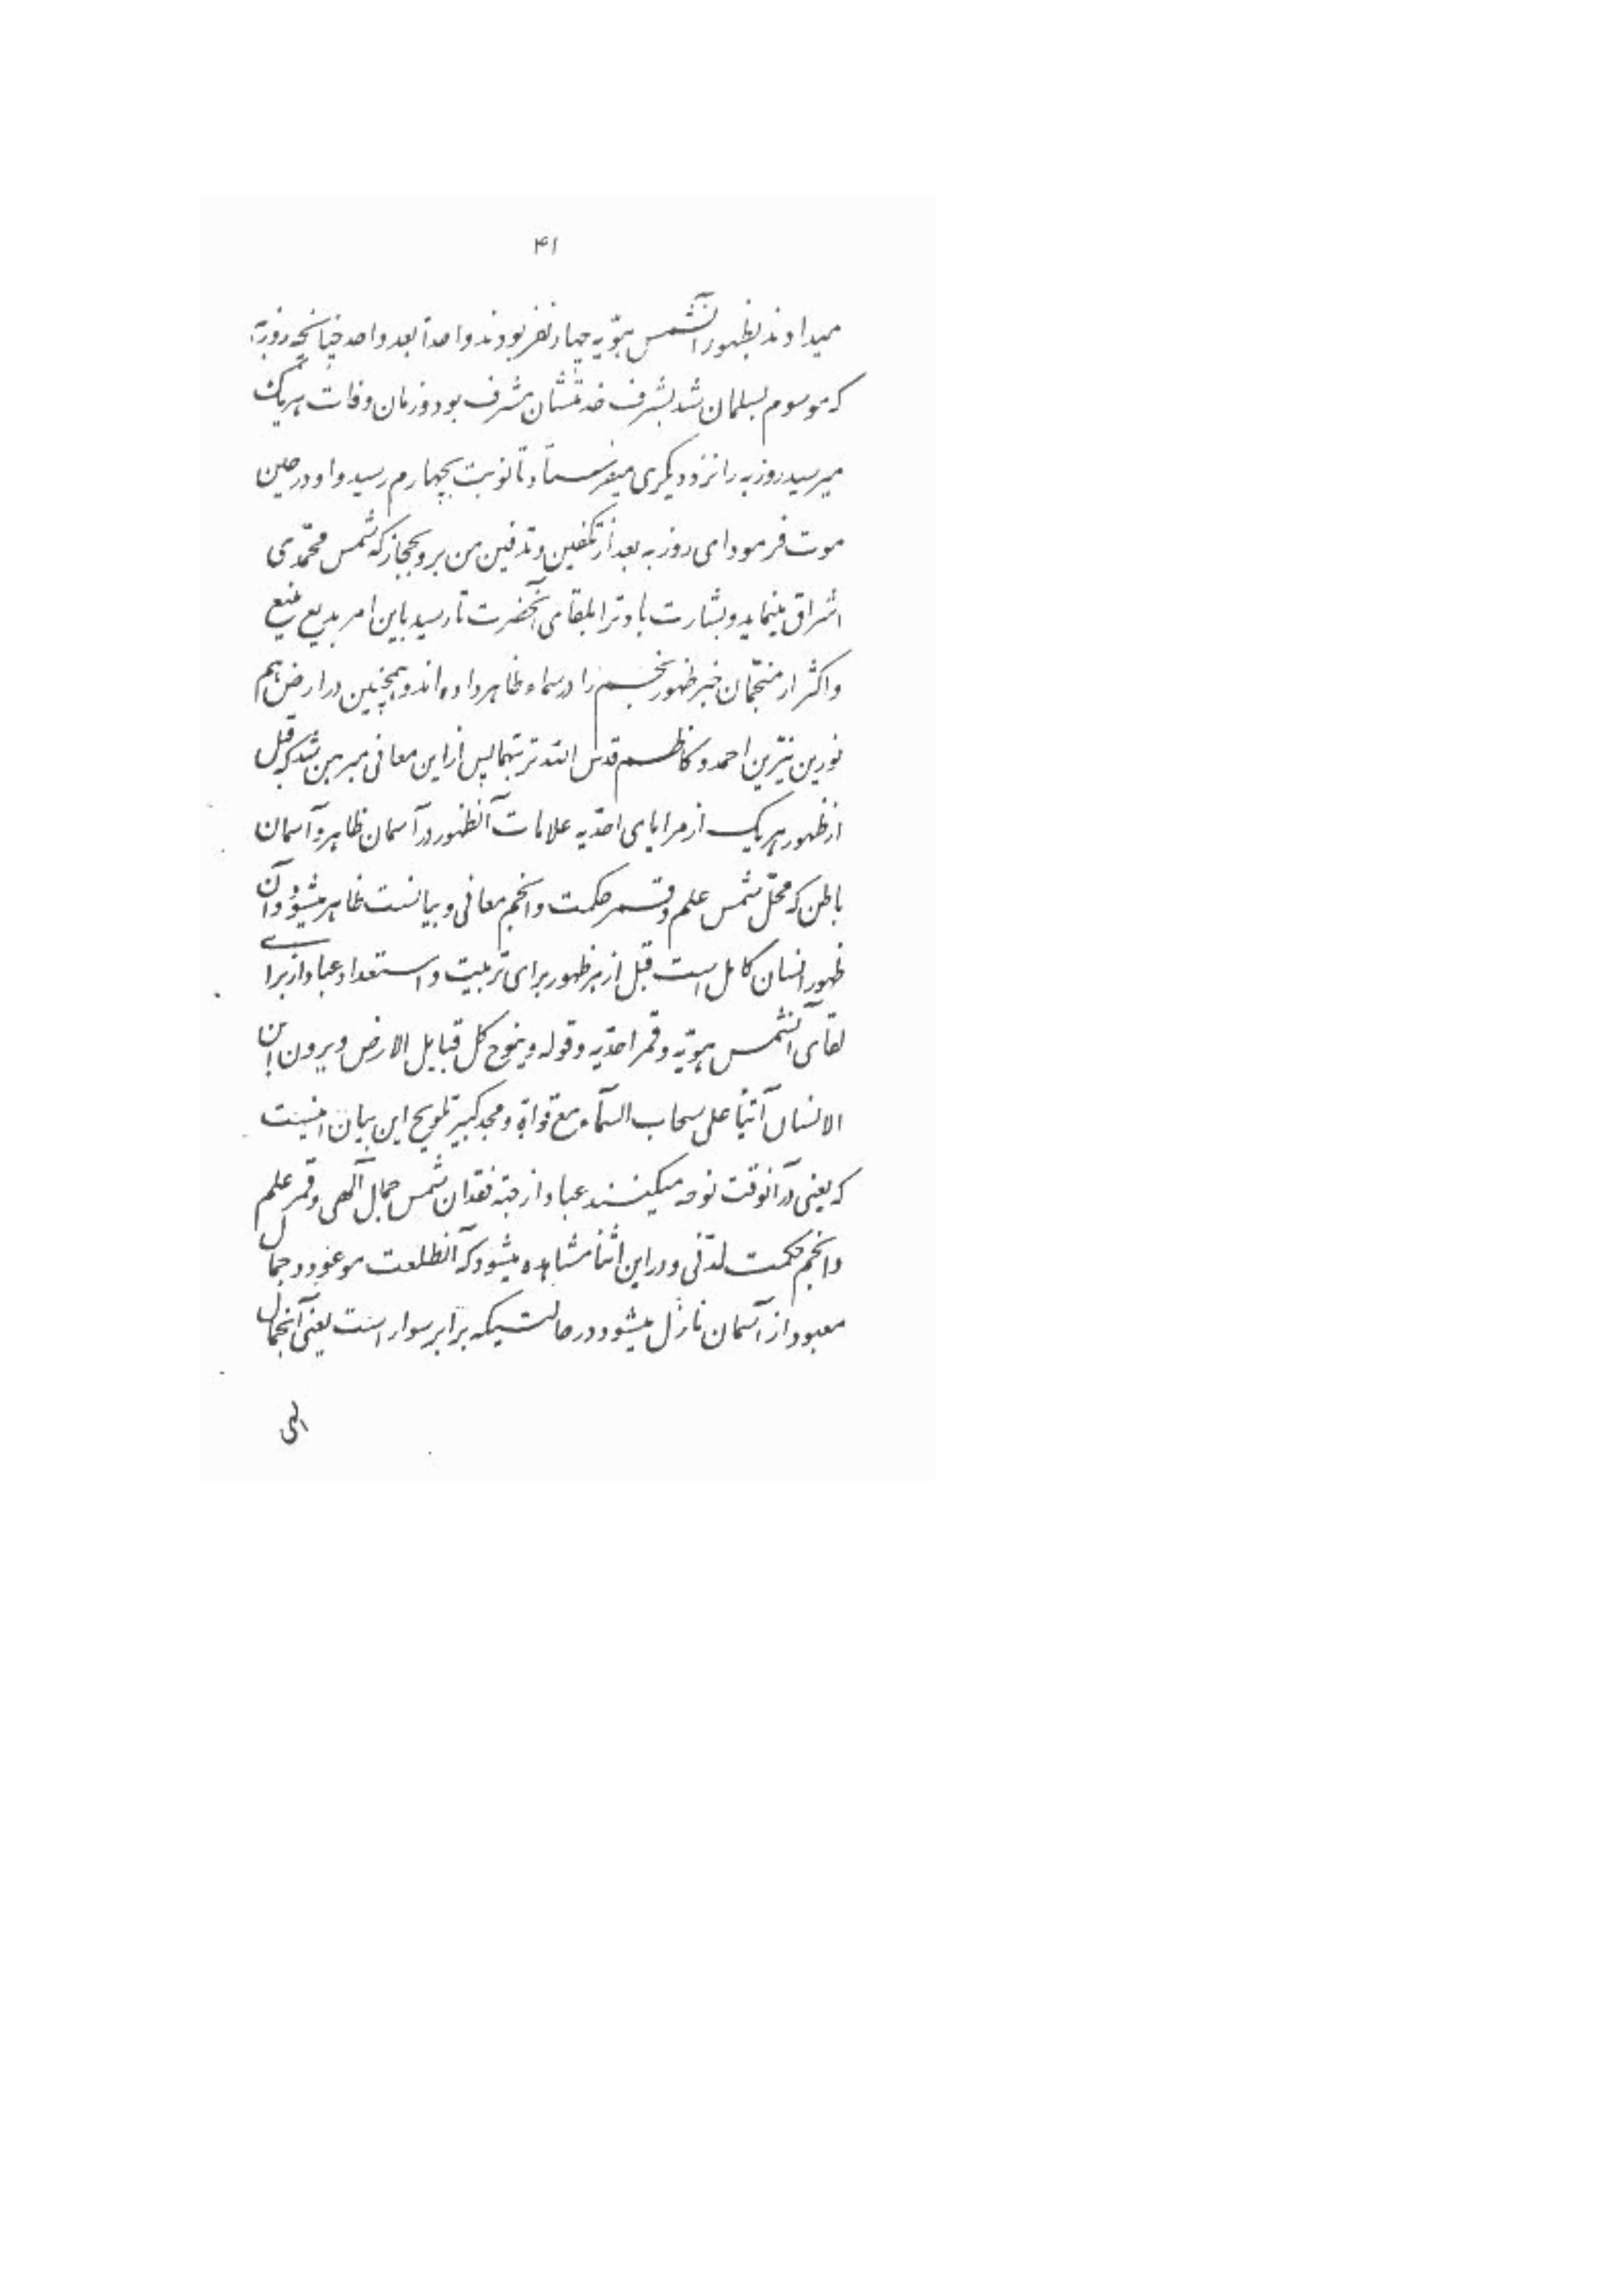 ۴۱
میدادند بظهور آنشمس هوّیه چهار نفر بودند واحداً بعد واحد چنانچه روزبه
که موسوم بسلمان شد بشرف خدمتشان مشرف بود و زمان وفات هریک
میرسید روزبه را نزد دیگری میفرستاد تا نوبت بچهارم رسید و او در حین
موت فرمود ای روزبه بعد از تکفین و تدفین من برو بحجاز که شمس محمّدی
اشراق مینماید و بشارت باد ترا بلقای آنحضرت تا رسید باین امر بدیع منیع
و اکثر از منجّمان خبر ظهور نجم را در سماء ظاهر داده‌اند و همچنین در ارض هم
نورین نیّرین احمد و کاظم قدس الله تربتهما پس از این معانی مبرهن شد که قبل
از ظهور هریک از مرایای احدّیه علامات آنظهور در آسمان ظاهر و آسمان
باطن که محلّ شمس علم و قمر حکمت و انجم معانی و بیانست ظاهر میشود و آن
ظهور انسان کامل است قبل از هر ظهور برای تربیت و استعداد عباد از برای
لقآی آنشمس هوّیه و قمر احدّیه و قوله و ینوح کل قبایل الارض و یرون ابن
الانسان آتیاً علی سحاب السّمآء مع قواة و مجد کبیر تلویح این بیان اینست
که یعنی در آنوقت نوحه میکنند عباد از جهة فقدان شمس جمال آلهی و قمر علم
و انجم حکمت لدنّی و در این اثنا مشاهده میشود که آنطلعت موعود و جمال
معبود از آسمان نازل میشود در حالتیکه بر ابر سوار است یعنی آنجمال
الهی